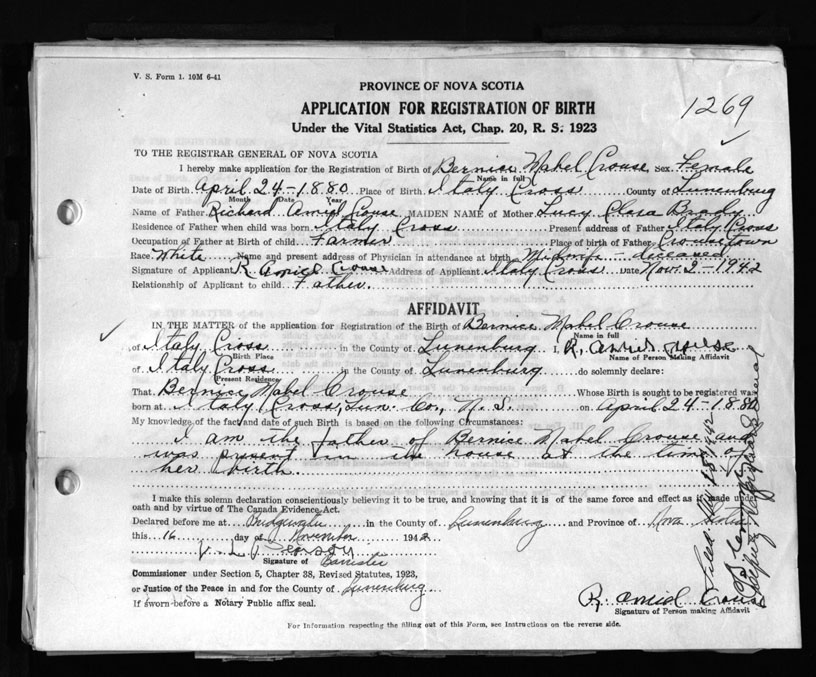 V. S. Form 1. 10M 6-41
PROVINCE OF NOVA SCOTIA
APPLICATION FOR REGISTRATION OF BIRTH
1269
Under the Vital Statistics Act, Chap. 20, R. S. 1923
TO THE REGISTRAR GENERAL OF NOVA SCOTIA
I hereby make application for the Registration of Birth of Bernice Mabel Crouse Sex Female
Name in full
Date of Birth April 24-1880 Place of Birth Italy Cross County of Lunenburg
Month Date Year
Name of Father Richard Amiel Crouse MAIDEN NAME of Mother Lucy Clara Brady
Residence of Father when child was born Italy Cross Present address of Father Italy Cross
Occupation of Father at Birth of child Farmer Place of birth of Father Crousetown
Race White Name and present address of Physician in attendance at birth Midwife - deceased
Signature of Applicant R. Amiel Crouse Address of Applicant Italy Cross Date Nov. 2-1942
Relationship of Applicant to child Father.
AFFIDAVIT
IN THE MATTER of the application for Registration of the Birth of Bernice Mabel Crouse
Name in full
of Italy Cross in the County of Lunenburg I, R. Amiel Crouse
Birth Place Name of Person Making Affidavit
of Italy Cross in the County of Lunenburg do solemnly declare:
Present Residence
That Bernice Mabel Crouse Whose Birth is sought to be registered was
born at Italy Cross, Lun. Co., N. S. on April 24-1880
My knowledge of the fact and date of such Birth is based on the following Circumstances:
I am the father of Bernice Mabel Crouse and
was present in the house at the time of
her birth.
I make this solemn declaration conscientiously believing it to be true, and knowing that it is of the same force and effect as if made under
oath and by virtue of The Canada Evidence Act.
Declared before me at Bridgewater in the County of Lunenburg and Province of Nova Scotia
this 16 day of November 1942
Signature of Barrister
Commissioner under Section 5, Chapter 38, Revised Statutes, 1923,
or Justice of the Peace in and for the County of Lunenburg
If sworn before a Notary Public affix seal.
R. Amiel Crouse
Signature of Person making Affidavit
For Information respecting the filling out of this Form, see Instructions on the reverse side.
Deputy Registrar General